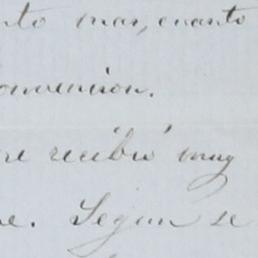 nto mas, cuanto
onvenison.
me recibió muy
se. Segun se